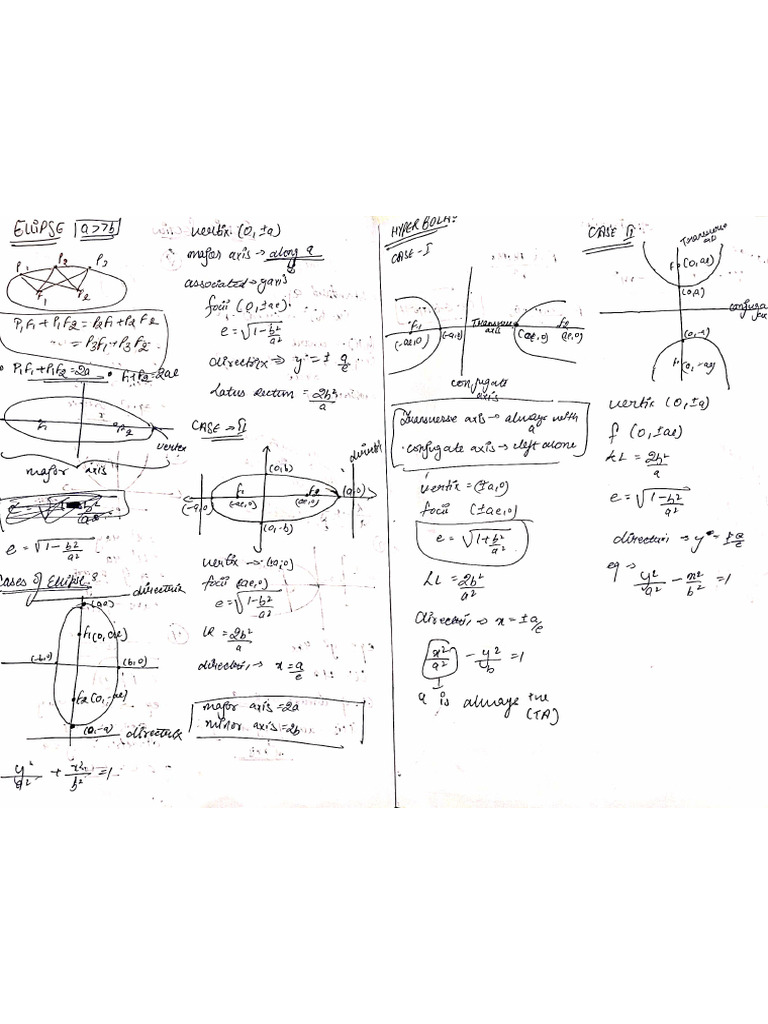 ELLIPSE a>7b
P1 P2 P3
F1 F2
P1F1 + P1F2 = P2F1 + P2F2
= P3F1 + P3F2
P1F1 + P1F2 = 2a F1F2 = 2ae
vertex
major axis
e = √1 - b²/a²
Cases of Ellipse :
directrix
F1(0, ae)
(-b,0) (b,0)
F2(0, -ae)
(0,-a) directrix
y²/a² + x²/b² = 1
vertix (0, ±a)
major axis → along a
associated → y axis
focii (0, ±ae)
e = √1 - b²/a²
directrix ⇒ y = ± a/e
Latus rectum = 2b²/a
CASE → II
(0,b)
F1 F2
(-a,0) (-ae,0) (ae,0) (a,0)
(0,-b)
vertix → (±a,0)
focii (ae,0)
e = √1 - b²/a²
LR = 2b²/a
x = a/e
major axis = 2a
minor axis = 2b
HYPERBOLA:
CASE - I
F1 F2
(-ae,0) (-a,0) Transverse axis (ae,0)
conjugate
axis
Transverse axis → always with a
• conjugate axis → left alone
vertix = (±a,0)
focii (±ae,0)
e = √1 + b²/a²
LL = 2b²/a²
x = ±a/e
x²/a² - y²/b = 1
a is always +ve
(TA)
CASE II
Transverse
F (0, ae)
(0,a)
F (0, -ae)
vertix (0, ±a)
f (0, ±ae)
LL = 2b²/a
e = √1 - b²/a²
y = ±a/e
eq →
y²/a² - x²/b² = 1